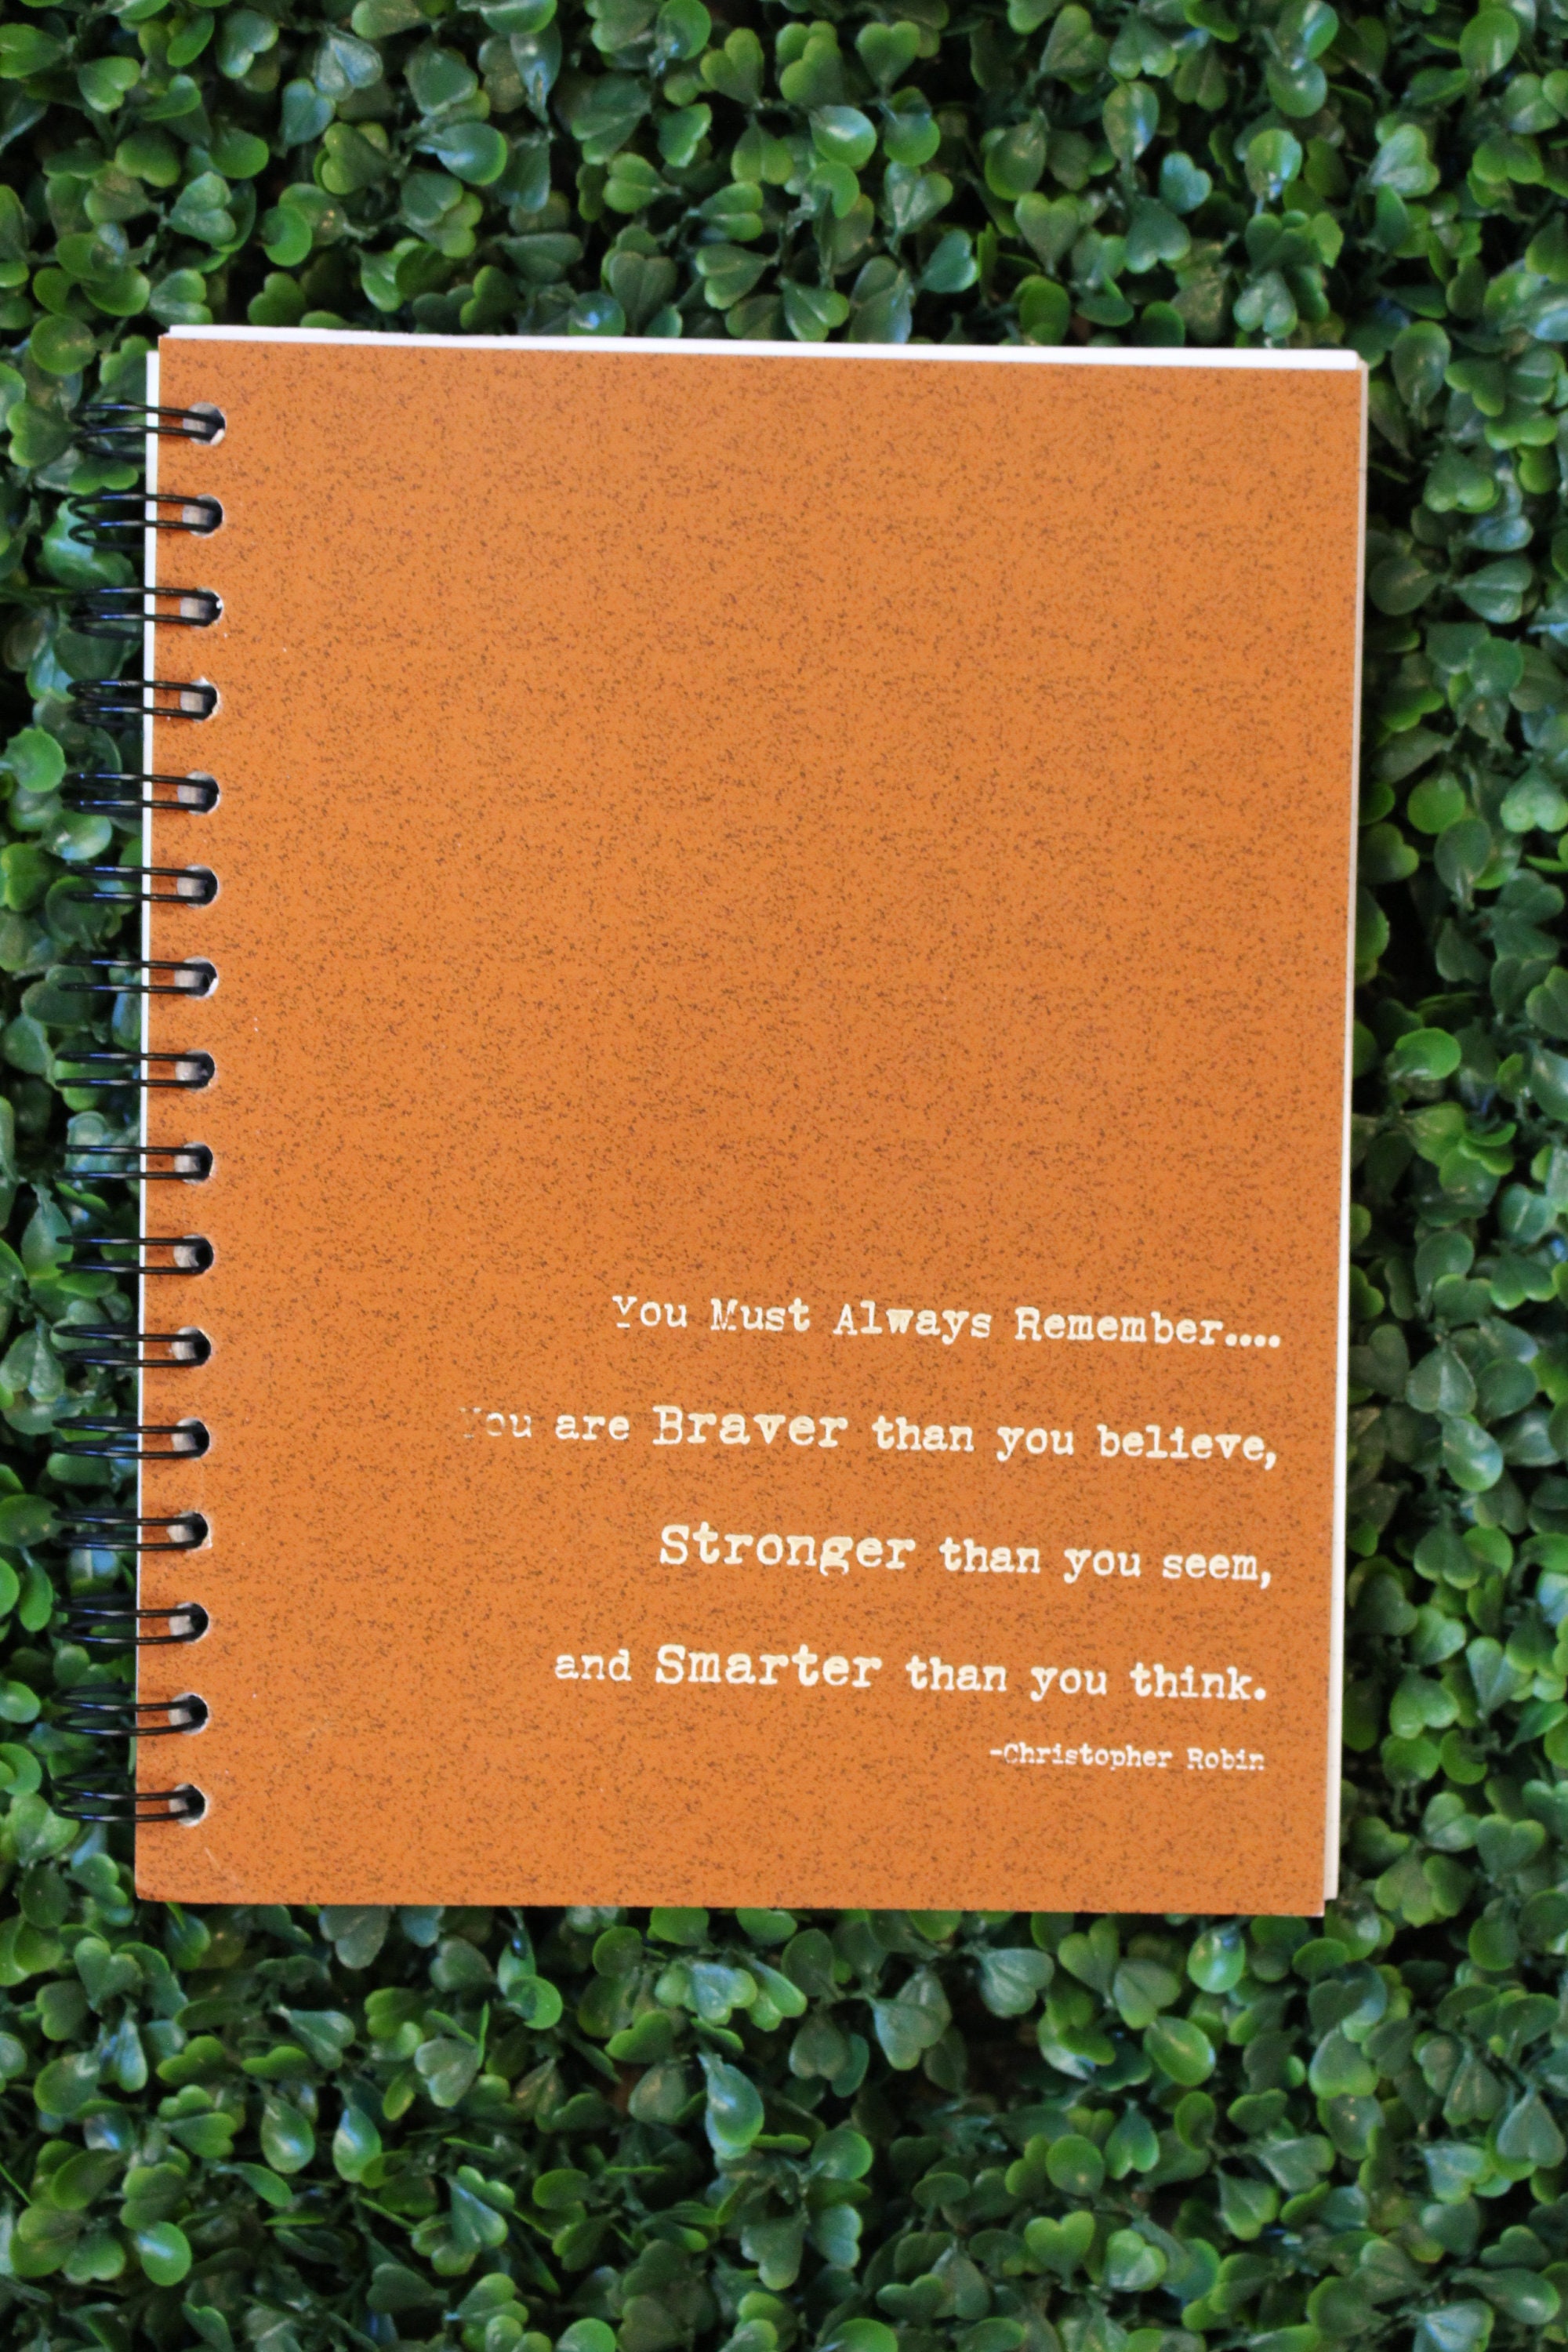 You Must Always Remember....
You are Braver than you believe,
Stronger than you seem,
and Smarter than you think.
-Christopher Robin